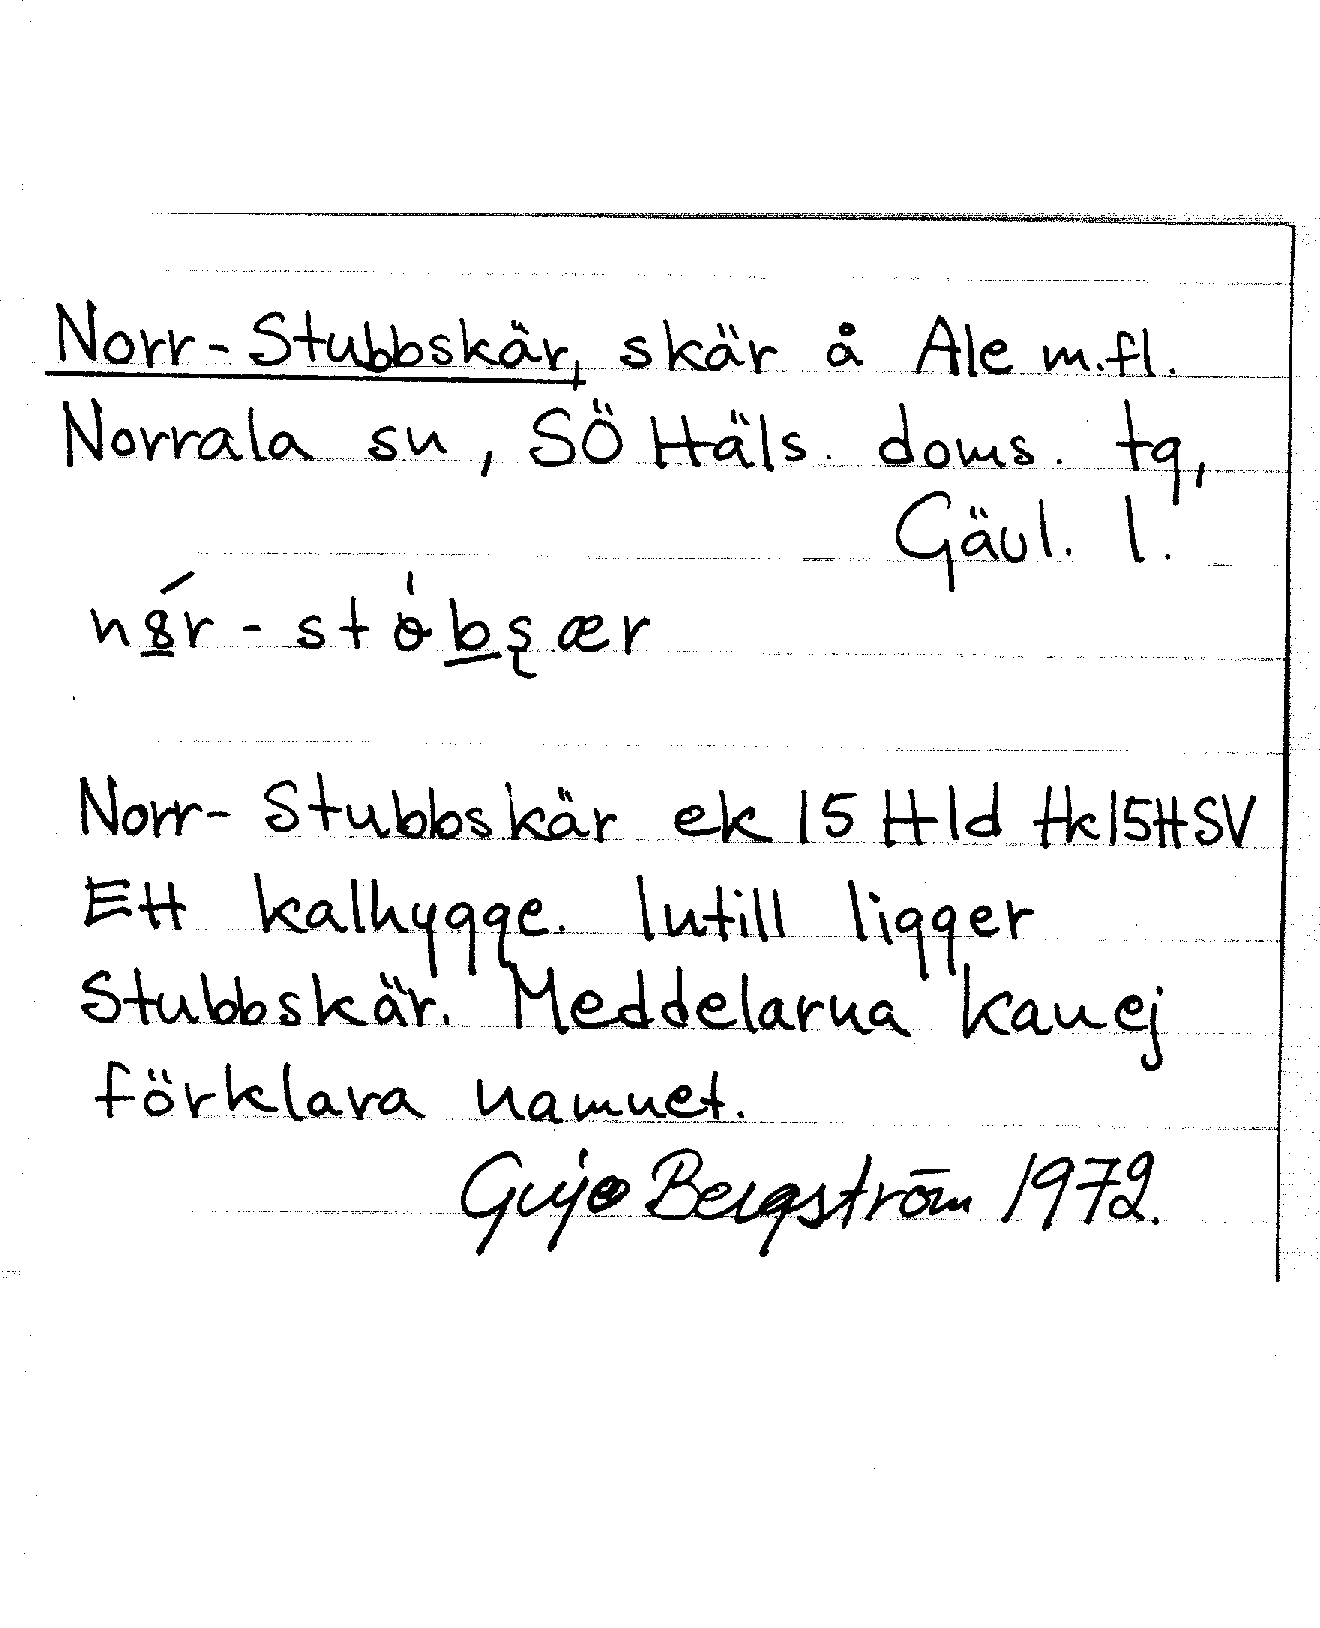 Norr-Stubbskär, skär å Ale m.fl.
Norrala sn, SÖ Häls. doms. tg,
Gävl. l.
Norr-Stubbskär ek 15 Hld Hk15HSV
Ett kalhygge. Intill ligger
Stubbskär. Meddelarna kan ej
förklara namnet.
Bergström 1972.